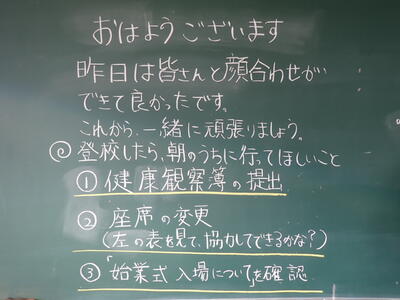 おはようございます
昨日は皆さんと顔合わせが
できて良かったです。
これから、一緒に頑張りましょう。
◎登校したら、朝のうちに行ってほしいこと
① 健康観察簿の提出
② 座席の変更
(左の表を見て、協力してできるかな?)
③ 「始業式 入場について」を確認